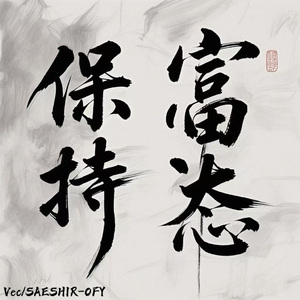 保持
富态
Vec/SAESHIR-OFY